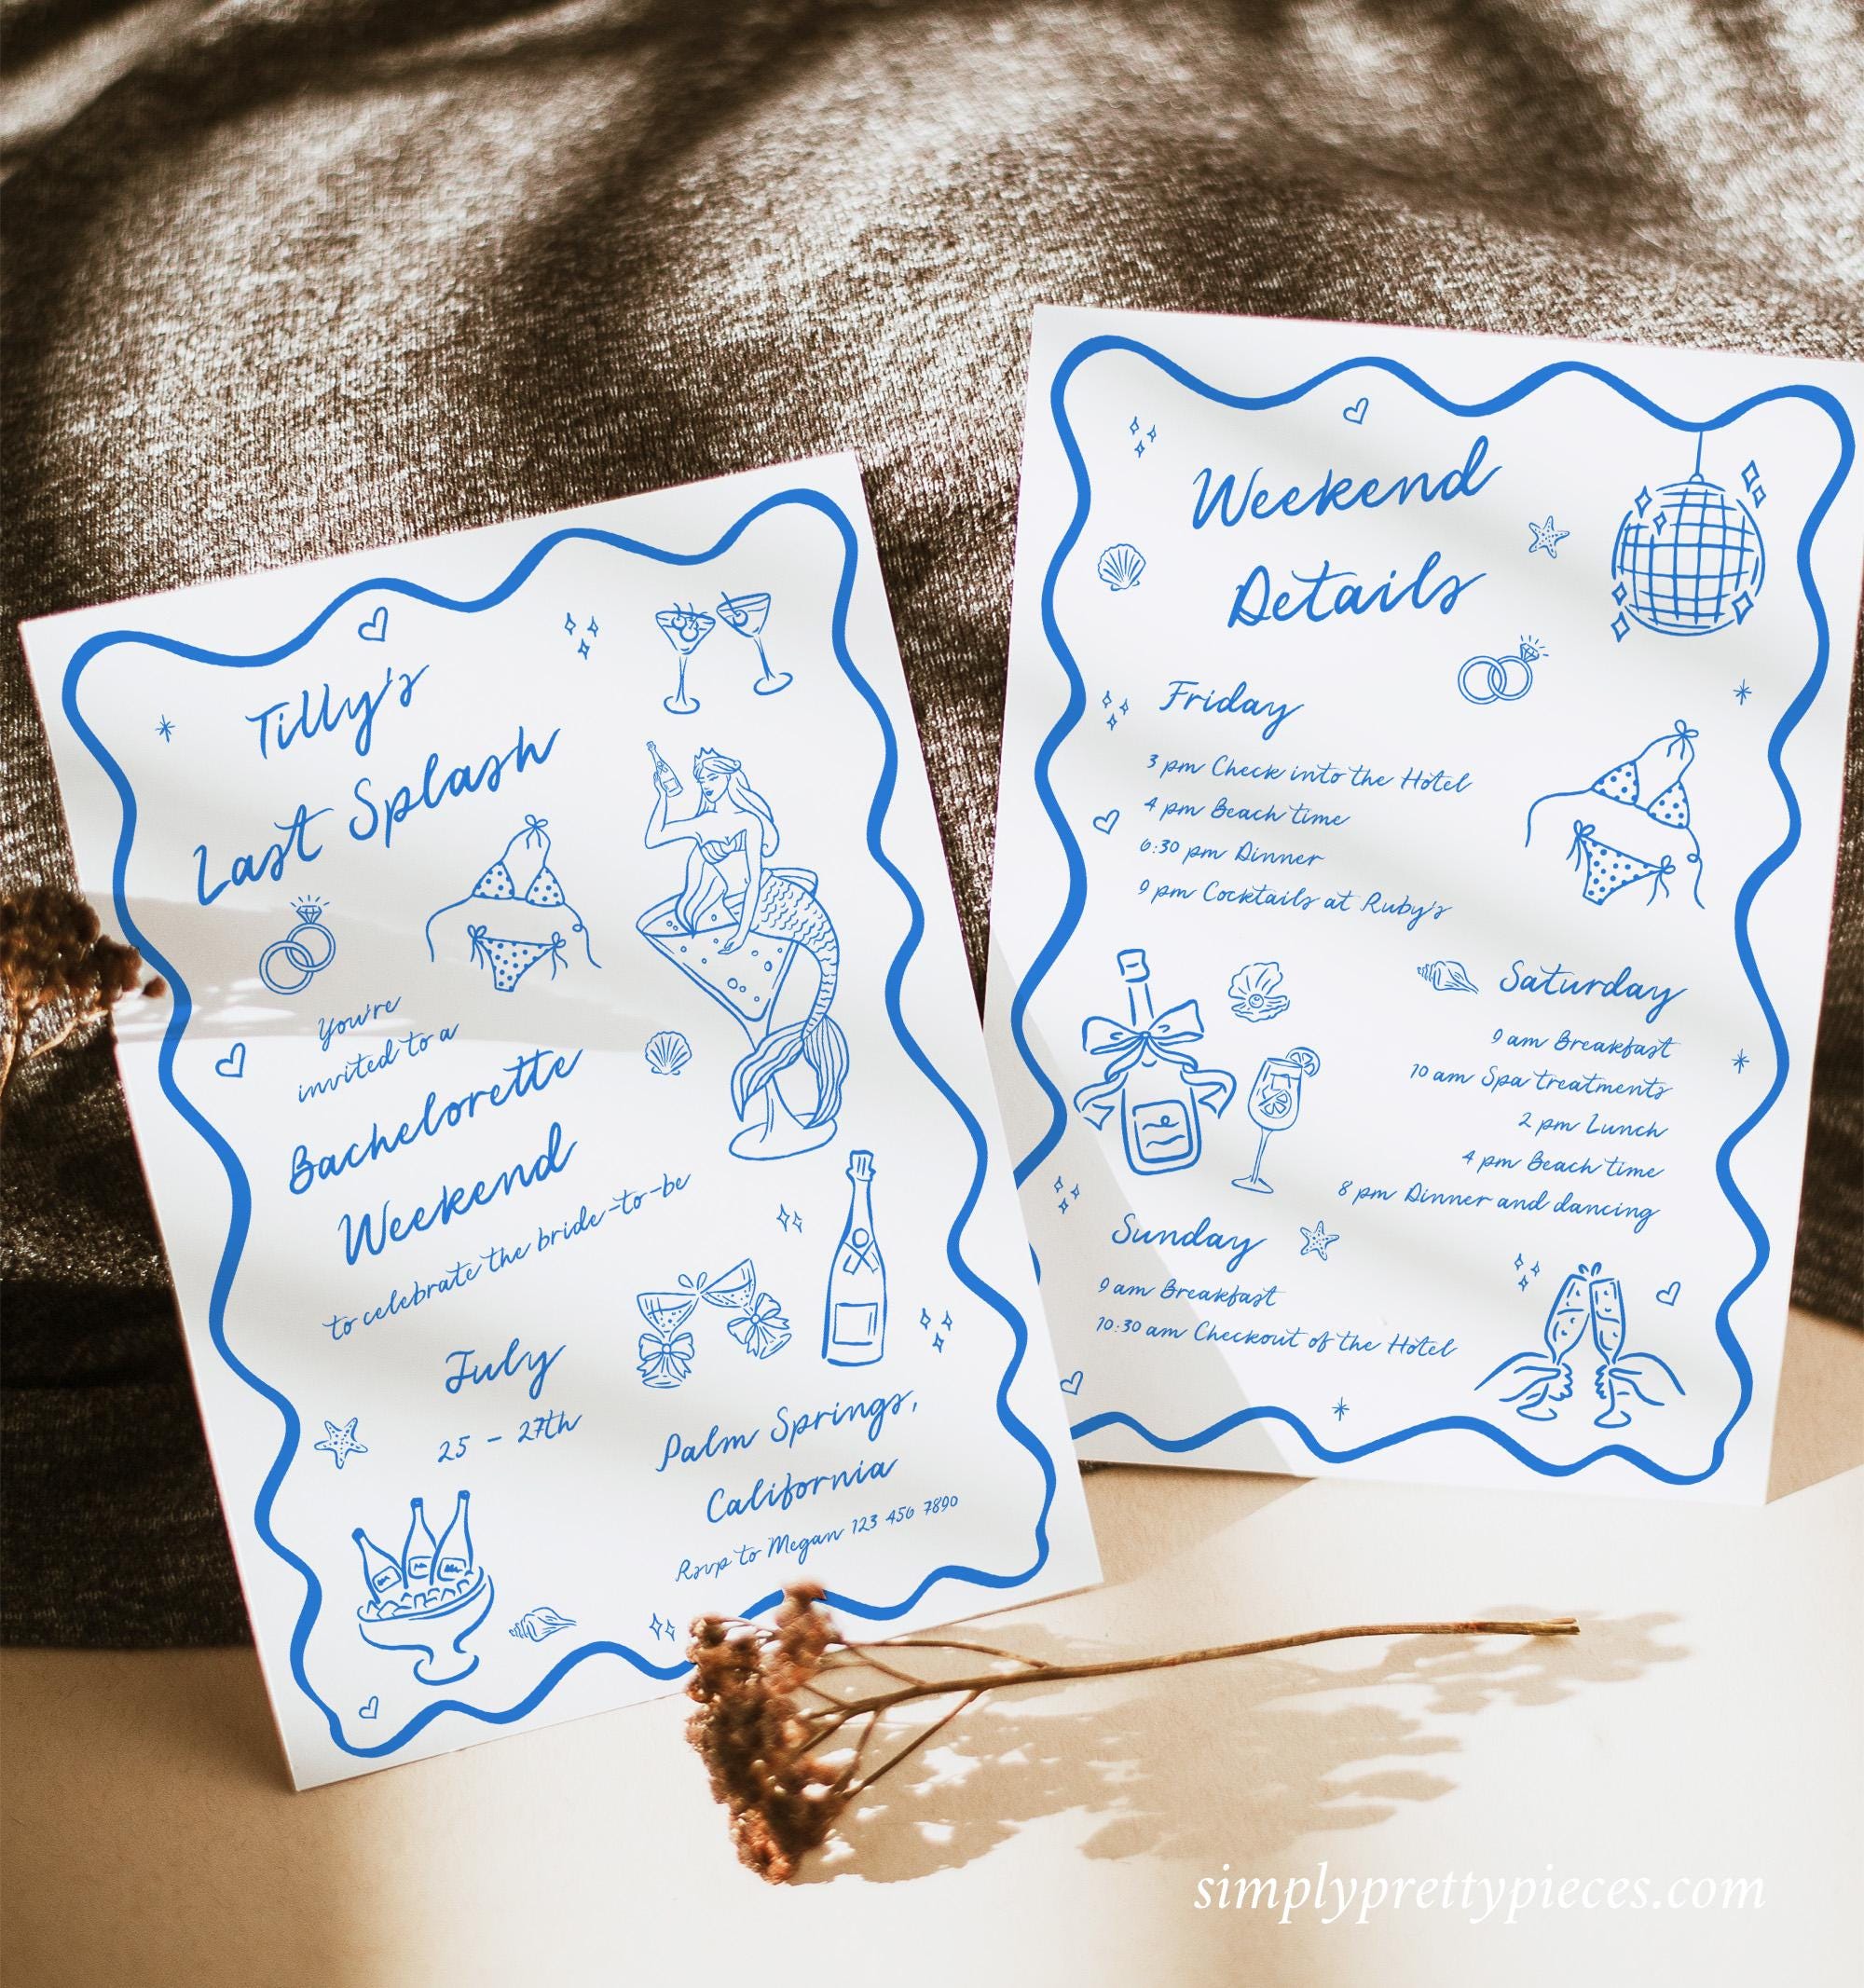 Tilly's
Last Splash
You're
invited to a
Bachelorette
Weekend
to celebrate the bride-to-be
July
25 - 27th
Palm Springs,
California
Rsvp to Megan 123 456 7890
Weekend
Details
Friday
3 pm Check into the Hotel
4 pm Beach time
6:30 pm Dinner
9 pm Cocktails at Ruby's
Saturday
9 am Breakfast
10 am Spa treatments
2 pm Lunch
4 pm Beach time
8 pm Dinner and dancing
Sunday
9 am Breakfast
10:30 am Checkout of the Hotel
simplyprettypieces.com